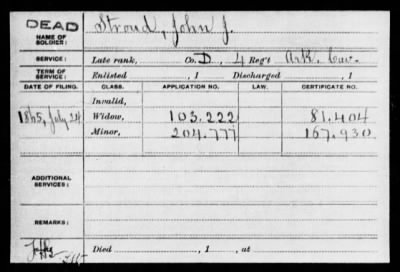 DEAD
NAME OF SOLDIER: Stroud, John J.
SERVICE: Late rank, Co. D, 4 Reg't Ark. Cav.
TERM OF SERVICE: Enlisted , 1 Discharged , 1
DATE OF FILING. CLASS. APPLICATION NO. LAW. CERTIFICATE NO.
Invalid,
1865, July 24 Widow, 103.222 81.404
Minor, 204.777 167.930
ADDITIONAL SERVICES:
REMARKS:
Died , 1 , at